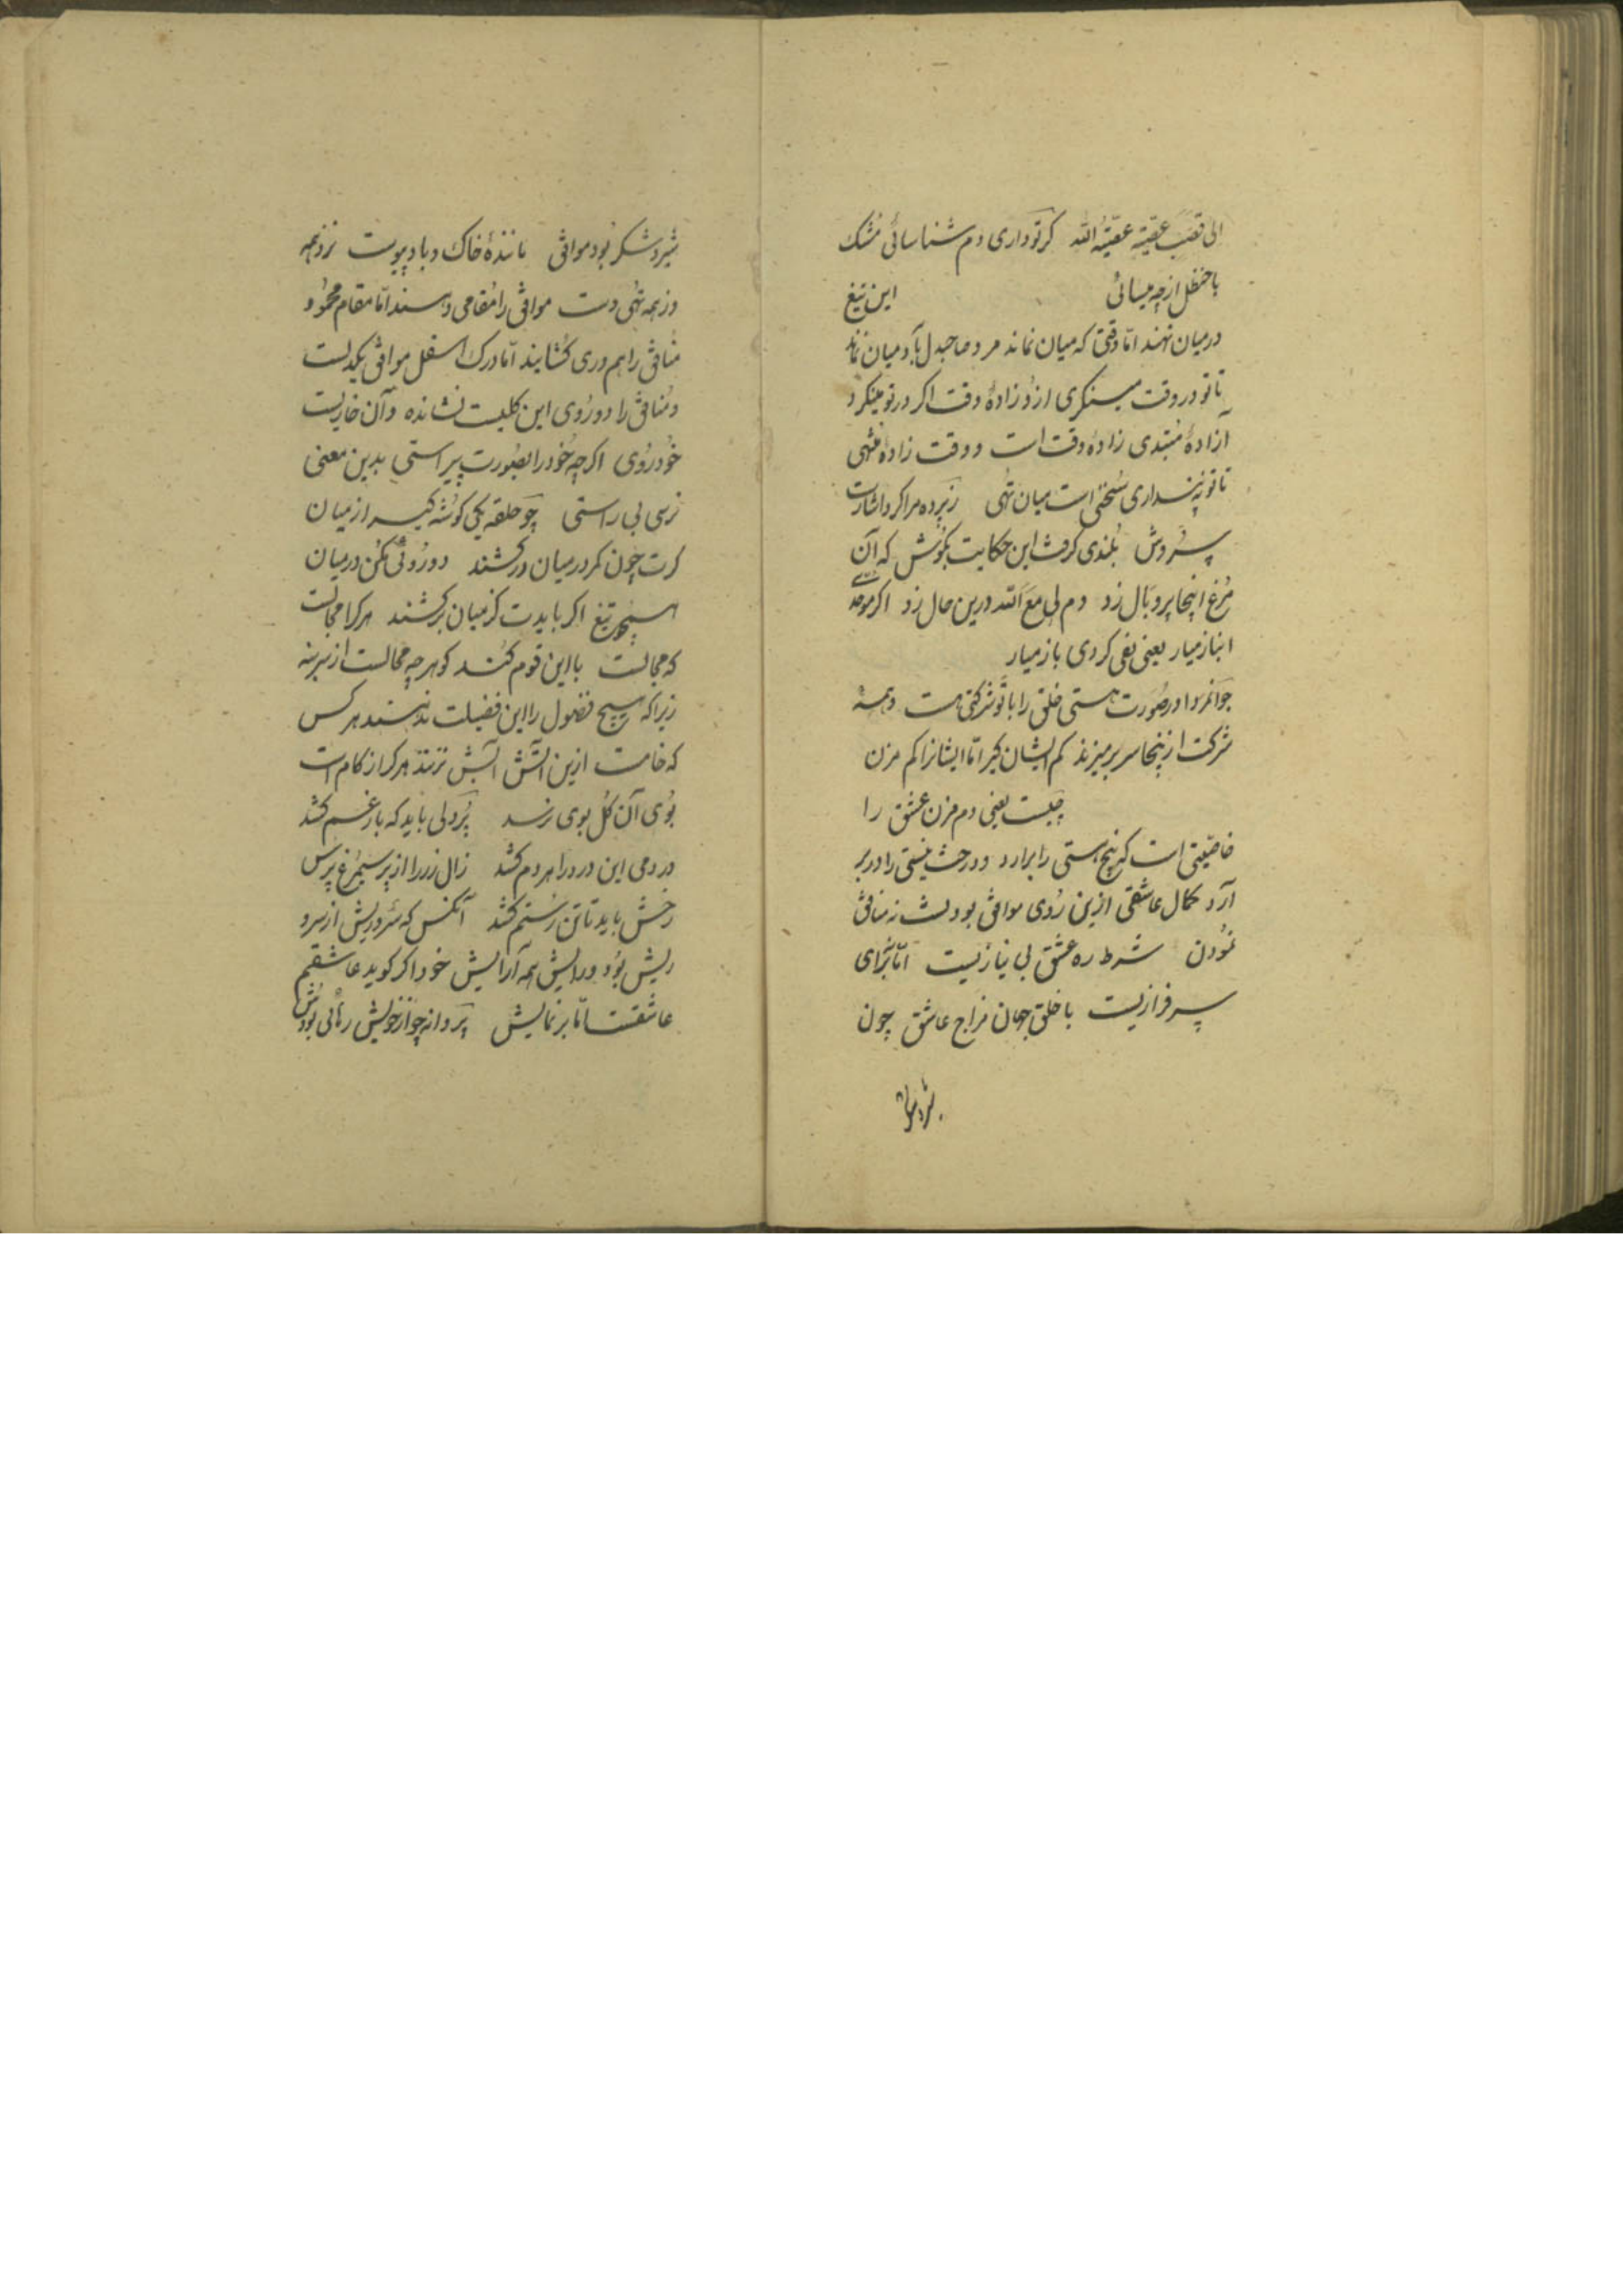 الی عقب عقبة عقبة الله کرتو داری دم شناسائی مشک
با حنظل از چه میسائی این تیغ
در میان نهند اما وقتی که میان نماند مرد صاحبدل بآدمیان نماند
تا تو در وقت مینکری ازو زادهٔ وقت اکر در تو مینکرد
آزادهٔ مبتدی زادهٔ وقت است و وقت زادهٔ منتهی
تا تو نپنداری سخنی است میان تهی زپرده مرا کرد اشارت
سروش بلندی کرفت این حکایت بکوش که آن
مرغ اینجا پر و بال زد دم لی مع الله درین حال زد اکر موحدی
انباز میار یعنی نفی کردی باز میار
جوانمردا در صورت هستی خلق را با تو شرکتی هست و همه
شرکت از ینجا سر بر میزند کم ایشان کیر اما ایشانرا کم مزن
چیست یعنی دم مزن عشق را
خاصیتی است که بیخ هستی را برارد و درخت نیستی را در بر
آرد کمال عاشقی ازین روی موافق بودنست نه منافق
نمودن شرط ره عشق بی نیازیست اما برای
سرفرازیست با خلق جهان مزاج عاشق چون
شیر و شکر
شیر و شکر بود موافق مانندهٔ خاک و باد پیوست نزد همه
وز همه تهی دست موافق را مقامی دهند اما مقام محمود
منافق را هم دری کشایند اما درک اسفل موافق یکدلست
و منافق را دو روی این کلیست نشانده و آن خاریست
خود روی اکرچه خود را بصورت پیراستی بدین معنی
نرسی بی راستی چو حلقه یکی کوشه کیر از میان
کرت چون کمر در میان درکشند دو روئی مکن در میان
همچو تیغ اکر بایدت کز میان برکشند هرکرا مجالست
که مجالست با این قوم کند کو هرچه محالست از سر بنه
زیرا که هیچ فضول را این فضیلت ندهند هر کس
که خامست ازین آتش آبش نزند هرکرا زکام است
بوی آن کل بوی نرسد پردلی باید که بار غم کشد
مردمی این درد را هر دم کشد زال زر را از پر سیمرغ پرس
رخش باید تا تن رستم کشد آنکس که سرو ریش از سر و
ریش بود ورایش همه آرایش خود اکر کوید عاشقم
عاشقست اما بر نمایش پروانه چو از خویش رهائی بودش